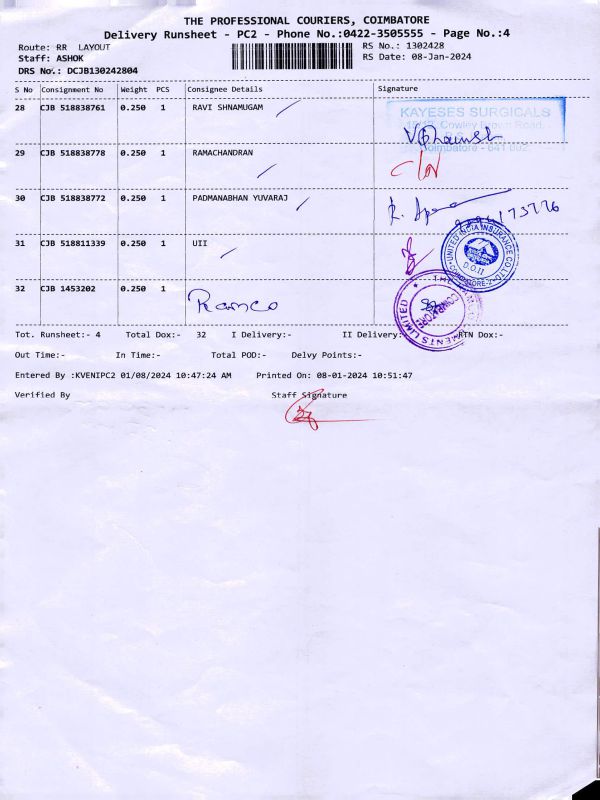 THE PROFESSIONAL COURIERS, COIMBATORE
Delivery Runsheet - PC2 - Phone No.:0422-3505555 - Page No.:4
Route: RR LAYOUT
RS No.: 1302428
Staff: ASHOK
RS Date: 08-Jan-2024
DRS No.: DCJB130242804
S No Consignment No Weight PCS Consignee Details Signature
28 CJB 518838761 0.250 1 RAVI SHNAMUGAM
KAYESES SURGICALS
Cowley Brown Road
Coimbatore - 641 002
29 CJB 518838778 0.250 1 RAMACHANDRAN
30 CJB 518838772 0.250 1 PADMANABHAN YUVARAJ
31 CJB 518811339 0.250 1 UII
UNITED INDIA INSURANCE CO LTD
D.O.II
COIMBATORE-2
32 CJB 1453202 0.250 1 Ramco
Tot. Runsheet:- 4 Total Dox:- 32 I Delivery:- II Delivery:- RTN Dox:-
Out Time:- In Time:- Total POD:- Delvy Points:-
Entered By :KVENIPC2 01/08/2024 10:47:24 AM Printed On: 08-01-2024 10:51:47
Verified By Staff Signature